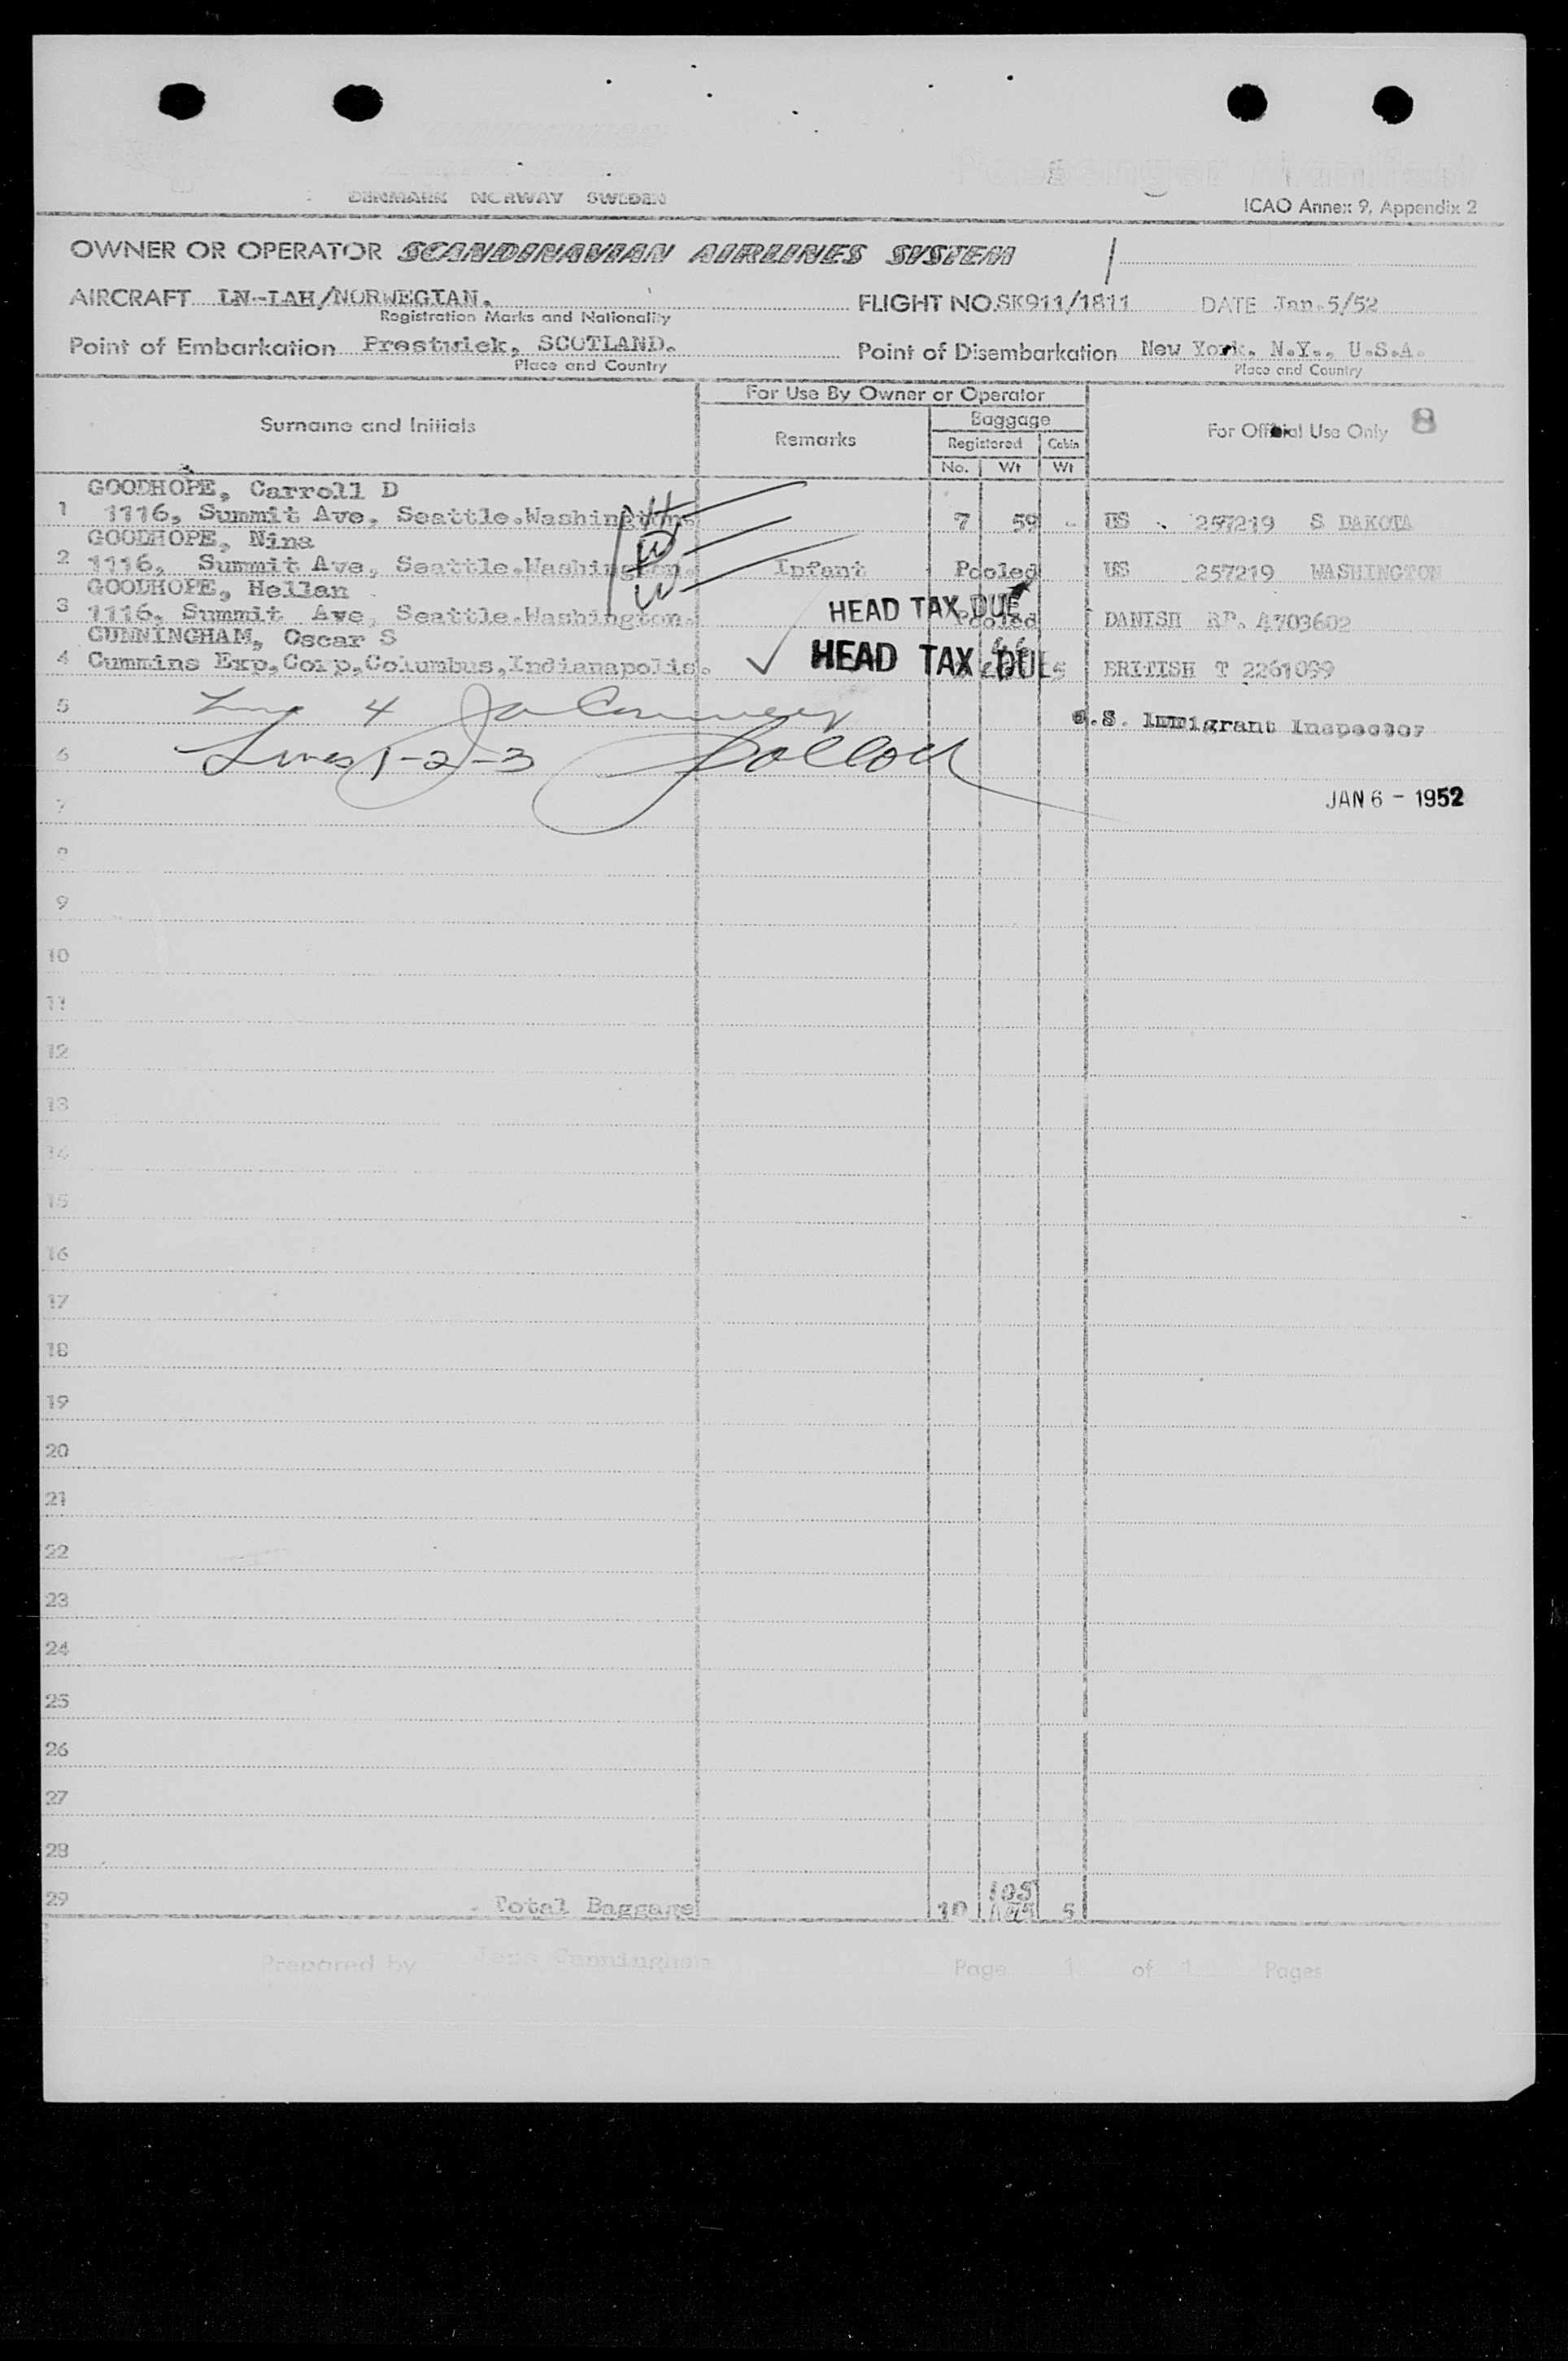 DENMARK NORWAY SWEDEN
ICAO Annex 9, Appendix 2
OWNER OR OPERATOR SCANDINAVIAN AIRLINES SYSTEM
AIRCRAFT LN-LAH/NORWEGIAN. FLIGHT NO. SK911/1811 DATE Jan.5/52
Registration Marks and Nationality
Point of Embarkation Prestwick, SCOTLAND. Point of Disembarkation New York. N.Y., U.S.A.
Place and Country Place and Country
For Use By Owner or Operator
Surname and Initials Remarks Baggage For Official Use Only 8
Registered Cabin
No. Wt Wt
GOODHOPE, Carroll D
1 1116, Summit Ave, Seattle.Washington. 7 59 - US 257219 S DAKOTA
GOODHOPE, Nina
2 1116, Summit Ave, Seattle.Washington. Infant Pooled US 257219 WASHINGTON
GOODHOPE, Hellan
3 1116, Summit Ave, Seattle.Washington. HEAD TAX DUE Pooled DANISH RP. 4703602
CUNNINGHAM, Oscar S
4 Cummins Exp,Corp,Columbus,Indianapolis. HEAD TAX DUE 5 BRITISH T 2261099
5 Line 4
U.S. Immigrant Inspector
6 Lines 1-2-3
7 JAN 6 - 1952
8
9
10
11
12
13
14
15
16
17
18
19
20
21
22
23
24
25
26
27
28
29 Total Baggage 10 105 5
Prepared by Cunningham Page 1 of 1 Pages